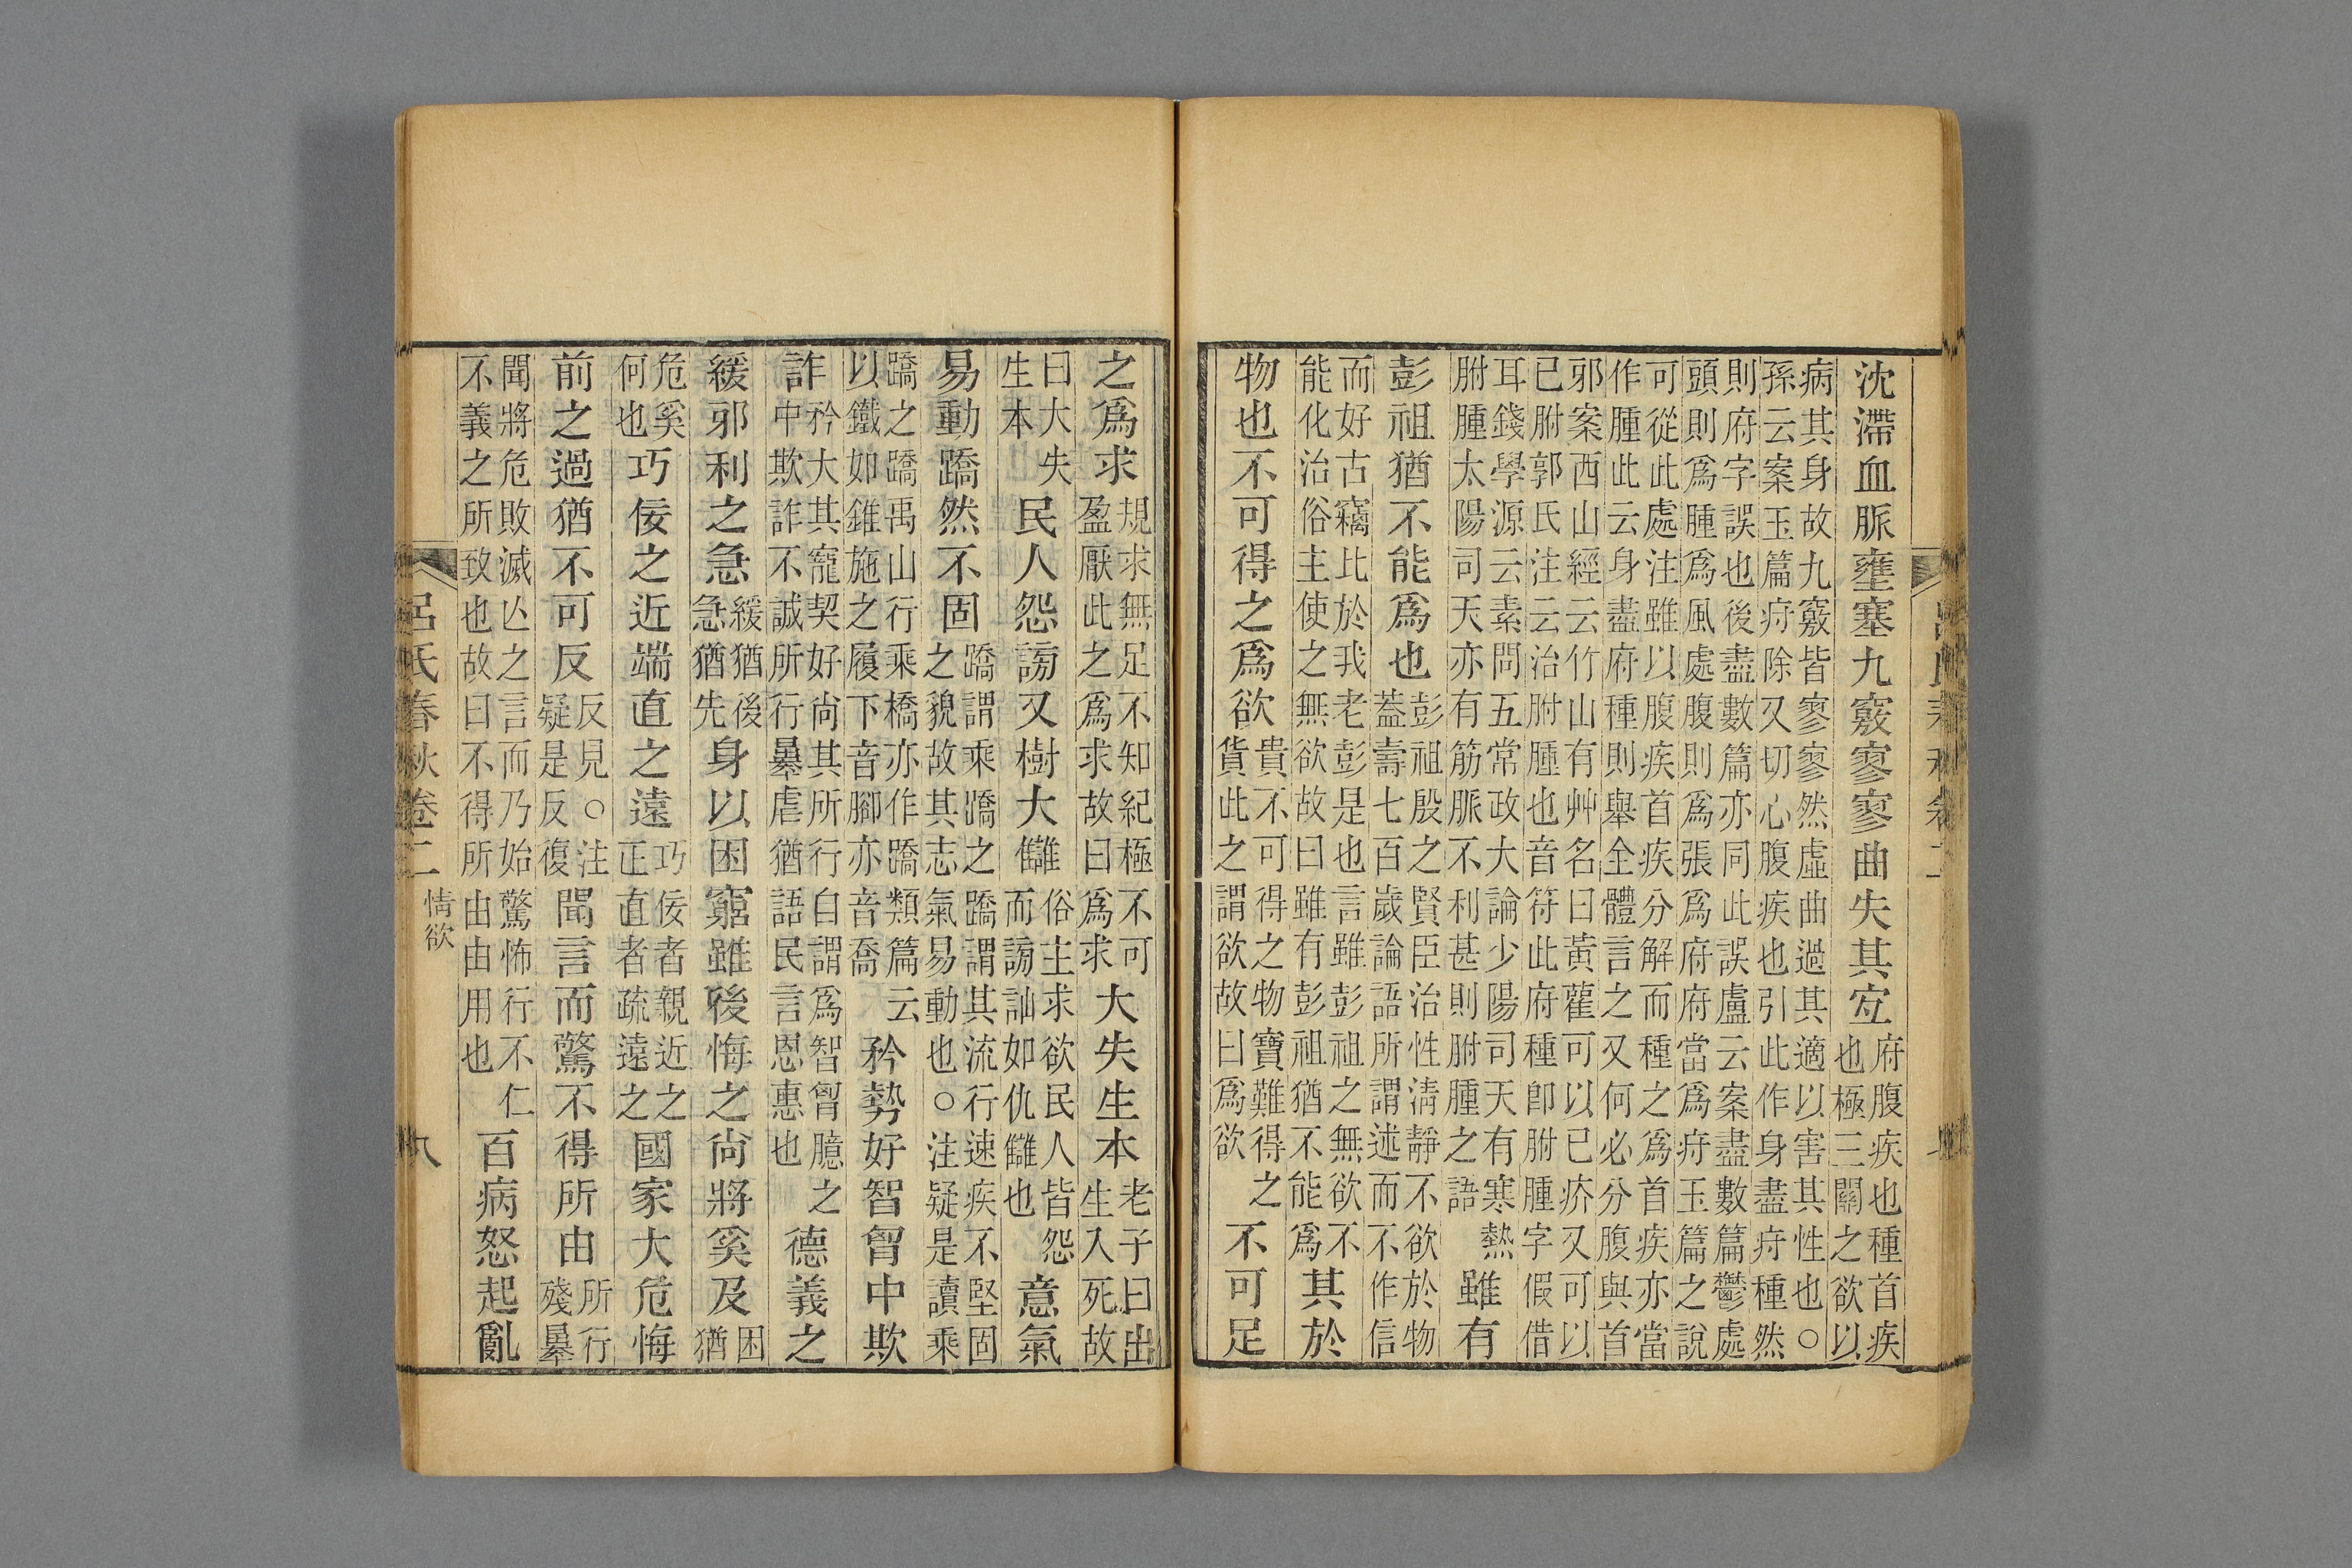 沈滯血脈壅塞九竅寥寥曲失其宐府腹疾也種首疾也極三關之欲以
病其身故九竅皆寥寥然虛曲過其適以害其性也○孫云案玉篇疛除又切心腹疾也引此作身盡疛種然
則府字誤也後盡數篇亦同此誤盧云案盡數篇鬱處頭則爲腫爲風處腹則爲張爲府府當爲疛玉篇之說
可從此處注雖以腹疾首疾分解而種之爲首疾亦當作腫此云身盡府種則舉全體言之又何必分腹與首
邪案西山經云竹山有艸名曰黃雚可以已疥又可以已胕郭氏注云治胕腫也音符此府種卽胕腫字假借
耳錢學源云素問五常政大論少陽司天有寒熱胕腫太陽司天亦有筋脈不利甚則胕腫之語雖有
彭祖猶不能爲也彭祖殷之賢臣治性淸靜不欲於物蓋壽七百歲論語所謂述而不作信
而好古竊比於我老彭是也言雖彭祖之無欲不能化治俗主使之無欲故曰雖有彭祖猶不能爲其於
物也不可得之爲欲貴不可得之物寶難得之貨此之謂欲故曰爲欲不可足
之爲求規求無足不知紀極不可盈厭此之爲求故曰爲求大失生本老子曰出生入死故
曰大失生本民人怨謗又樹大讎俗主求欲民人皆怨而謗訕如仇讎也意氣
易動蹻然不固蹻謂乘蹻之蹻謂其流行速疾不堅固之貌故其志氣易動也○注疑是讀乘
蹻之蹻禹山行乘橋亦作蹻類篇云以鐵如錐施之履下音腳亦音喬矜勢好智胷中欺
詐矜大其寵契好尚其所行自謂爲智胷臆之中欺詐不誠所行暴虐猶語民言恩惠也德義之
緩邪利之急緩猶後急猶先身以困窮雖後悔之尚將奚及困猶
危奚何也巧佞之近端直之遠巧佞者親近之正直者疏遠之國家大危悔
前之過猶不可反反見○注疑是反復聞言而驚不得所由所行殘暴
聞將危敗滅亾之言而乃始驚怖行不仁不義之所致也故曰不得所由由用也百病怒起亂
呂氏春秋卷二 情欲 八